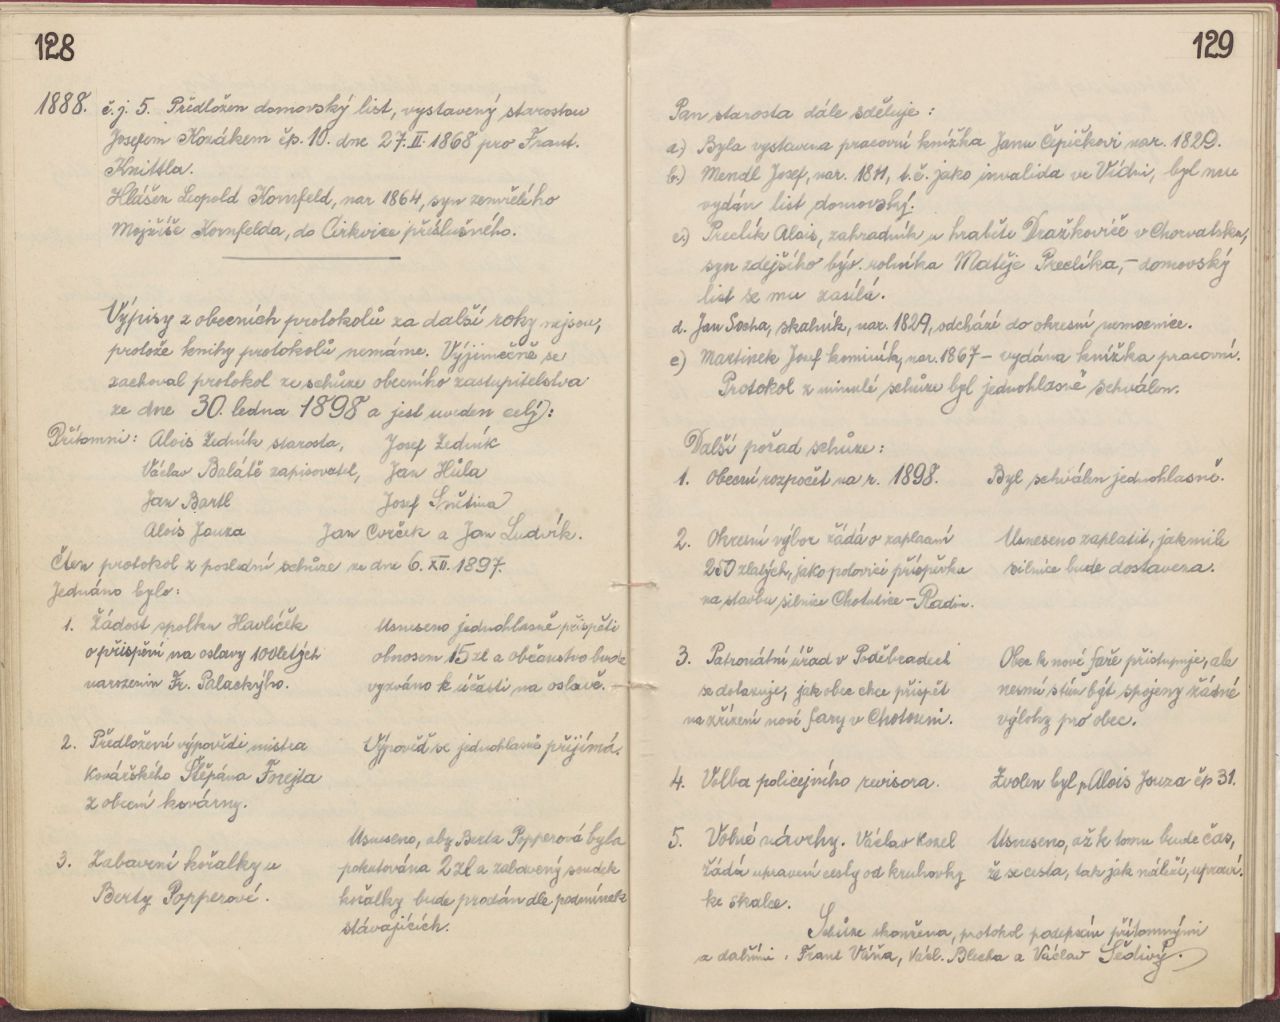 128
1888. č.j. 5. Předložen domovský list, vystavený starostou
Josefem Kozákem čp. 10. dne 27.II.1868 pro Frant.
Knittla.
Hlášen Leopold Kornfeld, nar 1864, syn zemřelého
Mojžíše Kornfelda, do Cirkvice příslušného.
Výpisy z obecních protokolů za další roky nejsou,
protože knihy protokolů nemáme. Výjimečně se
zachoval protokol ze schůze obecního zastupitelstva
ze dne 30. ledna 1898 a jest uveden celý):
Přítomni: Alois Zedník starosta, Josef Zedník
Václav Balátě zapisovatel, Jan Hůla
Jan Bartl Josef Snětina
Alois Jouza Jan Cvrček a Jan Ludvík.
Čten protokol z poslední schůze ze dne 6. XII. 1897.
Jednáno bylo:
1. Žádost spolku Havlíček Usneseno jednohlasně přispěti
o přispění na oslavy 100letých obnosem 15 zl a občanstvo bude
narozenin Fr. Palackýho. vyzváno k účasti na oslavě.
2. Předložení výpovědi mistra Výpověď se jednohlasně přijímá.
kovářského Štěpána Forejta
z obecní kovárny.
Usneseno, aby Berta Popperová byla
3. Zabavení kořalky u pokutována 2 zl a zabavený soudek
Berty Popperové. kořalky bude prodán dle podmínek
stávajících.
129
Pan starosta dále sděluje:
a.) Byla vystavena pracovní knížka Janu Čepičkovi nar. 1829.
b.) Mendl Josef, nar. 1811, t.č. jako invalida ve Vídni, byl mu
vydán list domovský.
c.) Preclík Alois, zahradník u hraběte Dražkoviče v Chorvatsku,
syn zdejšího býv. rolníka Matěje Preclíka, - domovský
list se mu zasílá.
d. Jan Socha, skalník, nar. 1829, odchází do okresní nemocnice.
e) Martinek Josef kominík, nar. 1867 - vydána knížka pracovní.
Protokol z minulé schůze byl jednohlasně schválen.
Další pořad schůze:
1. Obecní rozpočet na r. 1898. Byl schválen jednohlasně.
2. Okresní výbor žádá o zaplacení Usneseno zaplatit, jakmile
250 zlatých, jako polovici příspěvku silnice bude dostavena.
na stavbu silnice Chotutice - Radim.
3. Patronátní úřad v Poděbradech Obec k nové faře přistupuje, ale
se dotazuje, jak obec chce přispět nesmí s tím být spojeny žádné
na zřízení nové fary v Chotouni. výlohy pro obec.
4. Volba policejního revisora. Zvolen byl p. Alois Jouza čp 31.
5. Volné návrhy. Václav Kozel Usneseno, až k tomu bude čas,
žádá upravení cesty od kruhovky že se cesta, tak jak náleží, upraví.
ke skalce.
Schůze skončena, protokol podepsán přítomnými
a dalšími. Frant Váňa, Václ. Blecha a Václav Šedivý.